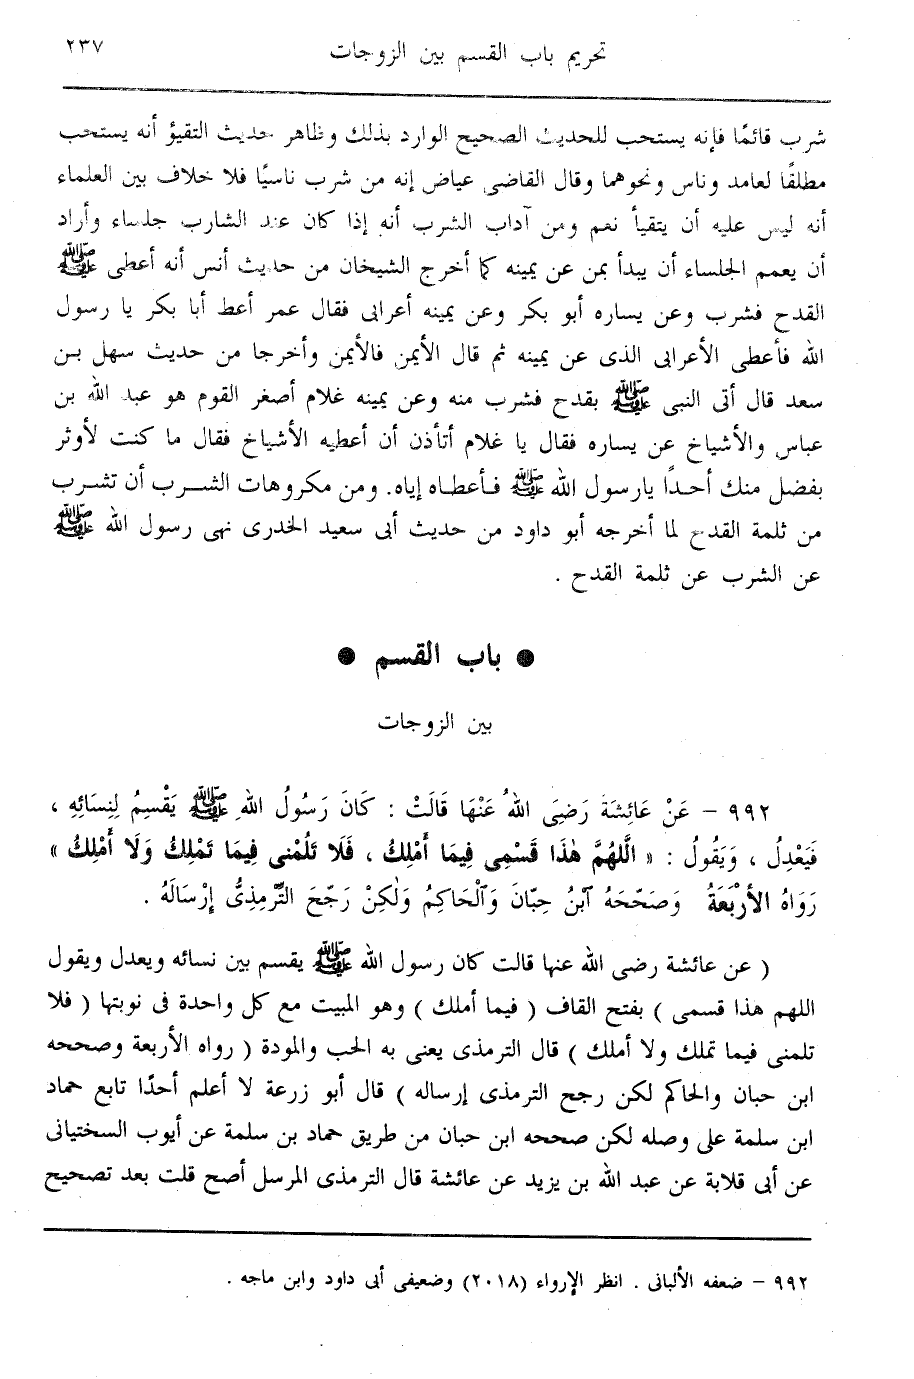 تحريم باب القسم بين الزوجات
٢٣٧
شرب قائمًا فإنه يستحب للحديث الصحيح الوارد بذلك وظاهر حديث التقيؤ أنه يستحب
مطلقًا لعامد وناس ونحوهما وقال القاضى عياض إنه من شرب ناسيًا فلا خلاف بين العلماء
أنه ليس عليه أن يتقيأ نعم ومن آداب الشرب أنه إذا كان عند الشارب جلساء وأراد
أن يعمم الجلساء أن يبدأ بمن عن يمينه كما أخرج الشيخان من حديث أنس أنه أعطى ﷺ
القدح فشرب وعن يساره أبو بكر وعن يمينه أعرابى فقال عمر أعط أبا بكر يا رسول
الله فأعطى الأعرابى الذى عن يمينه ثم قال الأيمن فالأيمن وأخرجا من حديث سهل بن
سعد قال أتى النبى ﷺ بقدح فشرب منه وعن يمينه غلام أصغر القوم هو عبد الله بن
عباس والأشياخ عن يساره فقال يا غلام أتأذن أن أعطيه الأشياخ فقال ما كنت لأوثر
بفضل منك أحدًا يارسول الله ﷺ فأعطاه إياه. ومن مكروهات الشرب أن تشرب
من ثلمة القدح لما أخرجه أبو داود من حديث أبى سعيد الخدرى نهى رسول الله ﷺ
عن الشرب عن ثلمة القدح .
● باب القسم ●
بين الزوجات
٩٩٢ – عَنْ عَائِشَةَ رَضِىَ اللهُ عَنْهَا قَالَتْ : كَانَ رَسُولُ اللهِ ﷺ يَقْسِمُ لِنِسَائِهِ ،
فَيَعْدِلُ ، وَيَقُولُ : « اللَّهُمَّ هٰذَا قَسْمِى فِيمَا أَمْلِكُ ، فَلَا تَلُمْنِى فِيمَا تَمْلِكُ وَلَا أَمْلِكُ »
رَوَاهُ الأَرْبَعَةُ وَصَحَّحَهُ ابْنُ حِبّانَ وَالْحَاكِمُ وَلٰكِنْ رَجَّحَ التِّرْمِذِىُّ إِرْسَالَهُ .
( عن عائشة رضى الله عنها قالت كان رسول الله ﷺ يقسم بين نسائه ويعدل ويقول
اللهم هذا قسمى ) بفتح القاف ( فيما أملك ) وهو المبيت مع كل واحدة فى نوبتها ( فلا
تلمنى فيما تملك ولا أملك ) قال الترمذى يعنى به الحب والمودة ( رواه الأربعة وصححه
ابن حبان والحاكم لكن رجح الترمذى إرساله ) قال أبو زرعة لا أعلم أحدًا تابع حماد
ابن سلمة على وصله لكن صححه ابن حبان من طريق حماد بن سلمة عن أيوب السختيانى
عن أبى قلابة عن عبد الله بن يزيد عن عائشة قال الترمذى المرسل أصح قلت بعد تصحيح
٩٩٢ – ضعفه الألبانى . انظر الإرواء (٢٠١٨) وضعيفى أبى داود وابن ماجه .